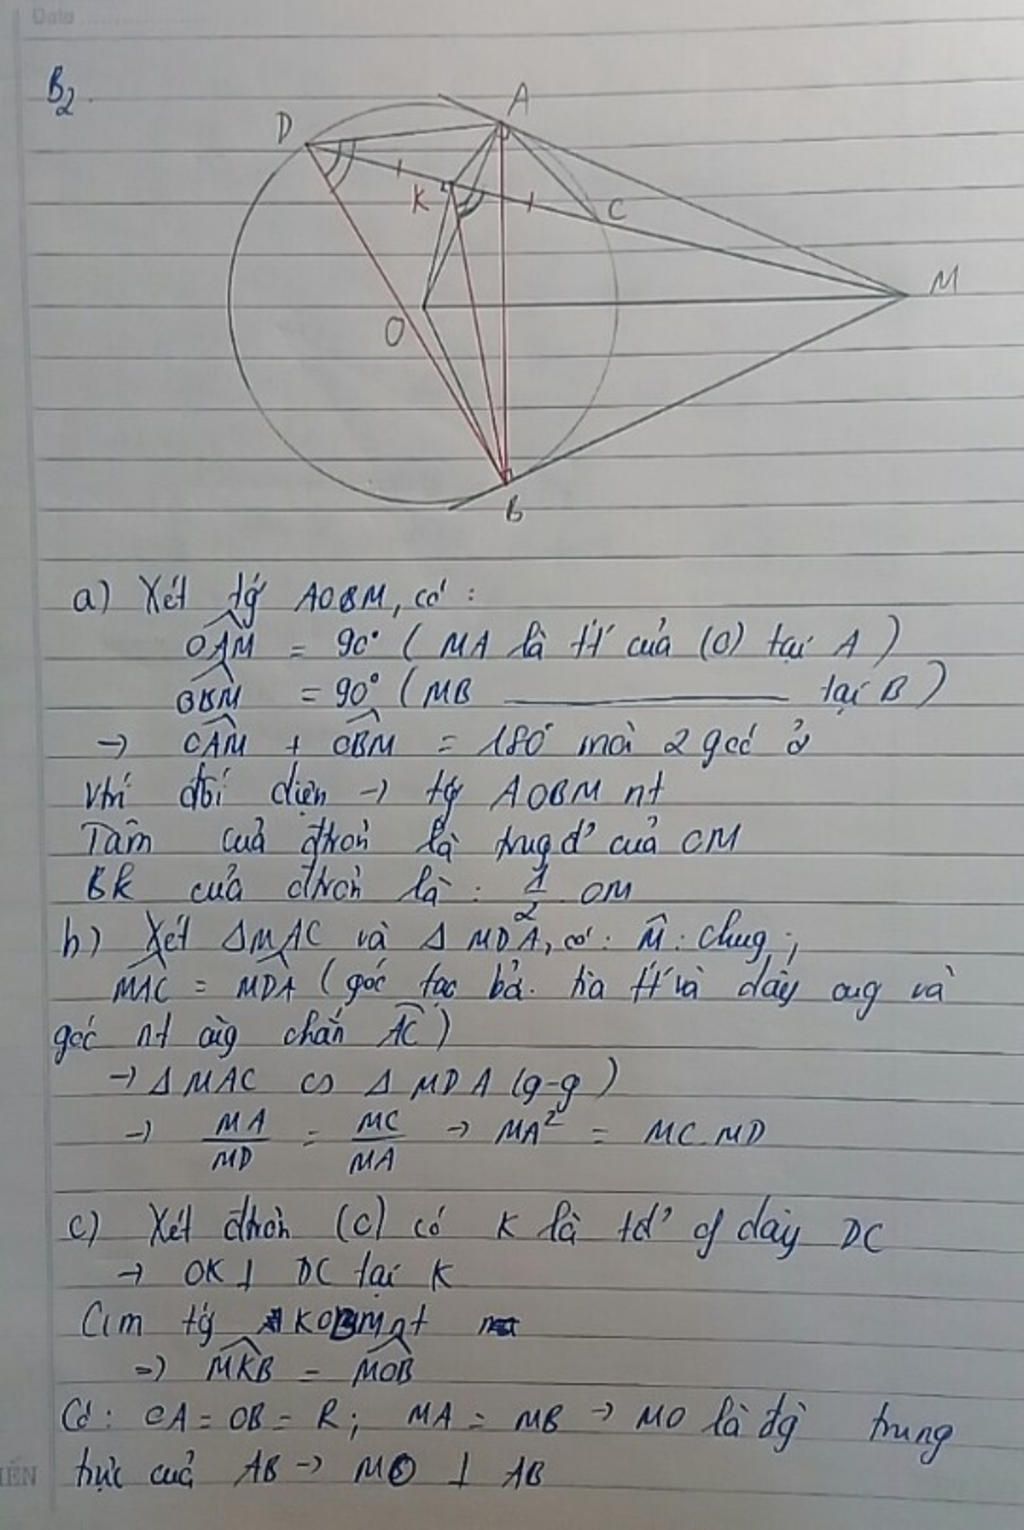 Date
B2.
D
A
K
C
M
O
B
a) Xét tg AOBM, có:
OAM = 90° (MA là tt của (O) tại A)
OBM = 90° (MB ______ tại B)
→ OAM + OBM = 180 mà 2 góc ở
vtrí đối diện → tg AOBM nt
Tâm của đtròn là trugđ' của OM
BK của đtròn là: 1/2 OM
b) Xét ΔMAC và Δ MDA, có: M̂: chug;
MAC = MDA (góc tạo bở. tia tt và dây cug và
góc nt cùg chắn AC)
→ Δ MAC ∽ Δ MDA (g-g)
→ MA/MD = MC/MA → MA² = MC.MD
c) Xét đtròn (O) có K là tđ' of dây DC
→ OK ⊥ DC tại K
C/m tg KOBM nt
=> MKB = MOB
Có: OA = OB = R; MA = MB → MO là đg trung
trực của AB → MO ⊥ AB